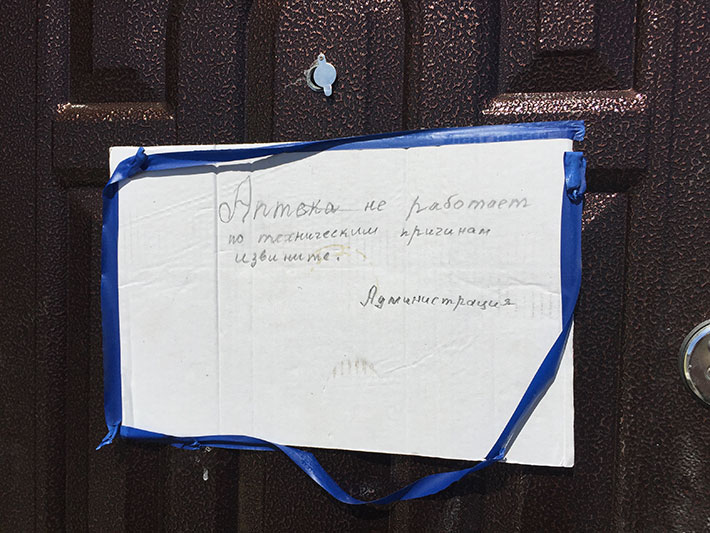 Аптека не работает
по техническим причинам
извините.
Администрация